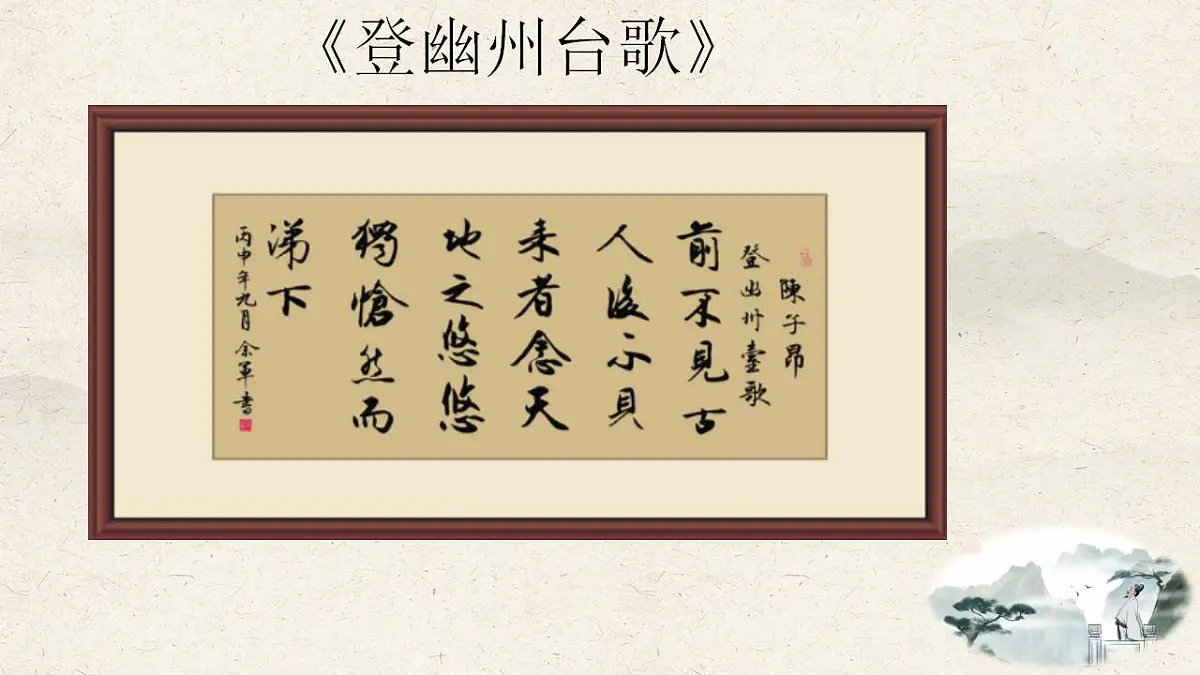 《登幽州台歌》
陳子昂
登幽州臺歌
前不見古
人後不見
来者念天
地之悠悠
獨愴然而
涕下
丙申年九月余軍書